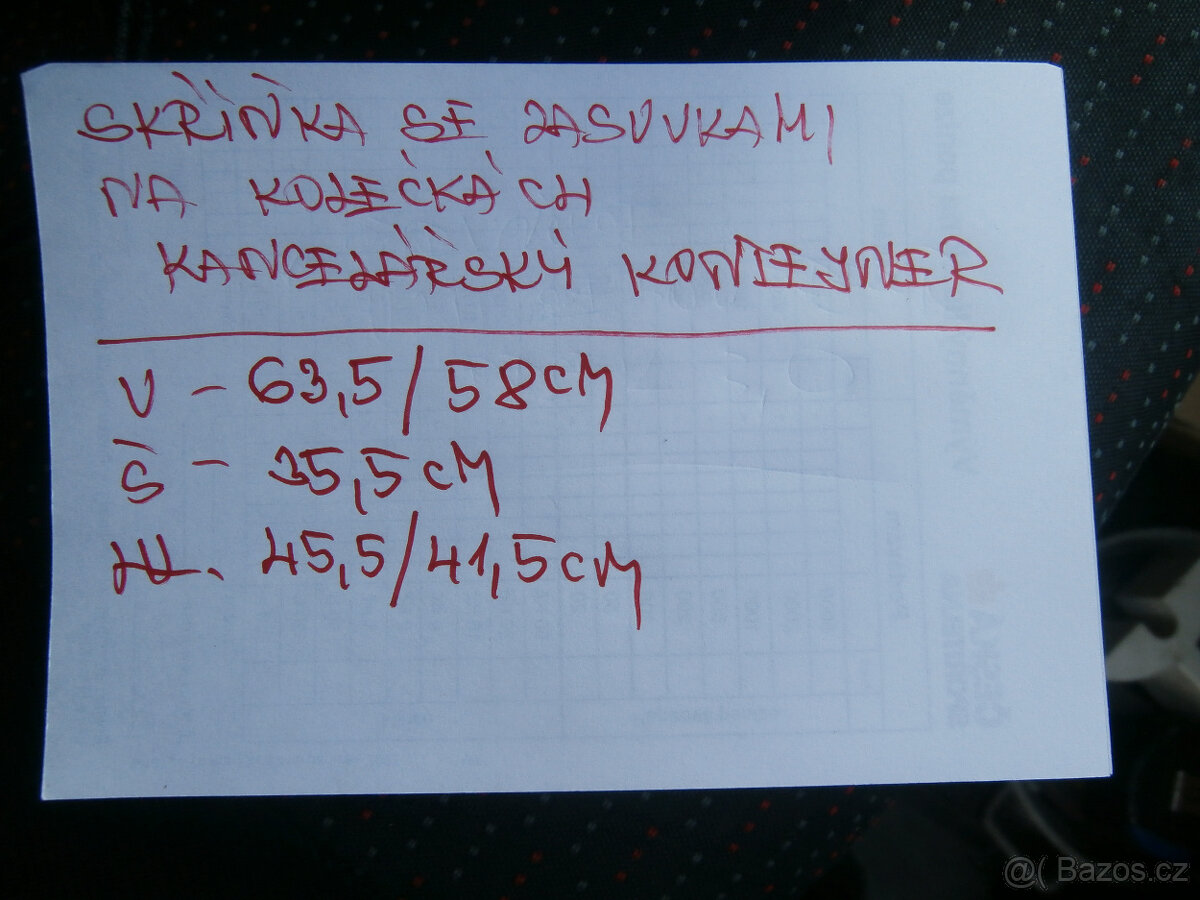 SKŘÍŇKA SE ZASUVKAMI
NA KOLEČKÁCH
KANCELÁŘSKÝ KONTEJNER
V - 63,5/58cM
Š - 35,5cM
HL. 45,5/41,5cM
@( Bazos.cz